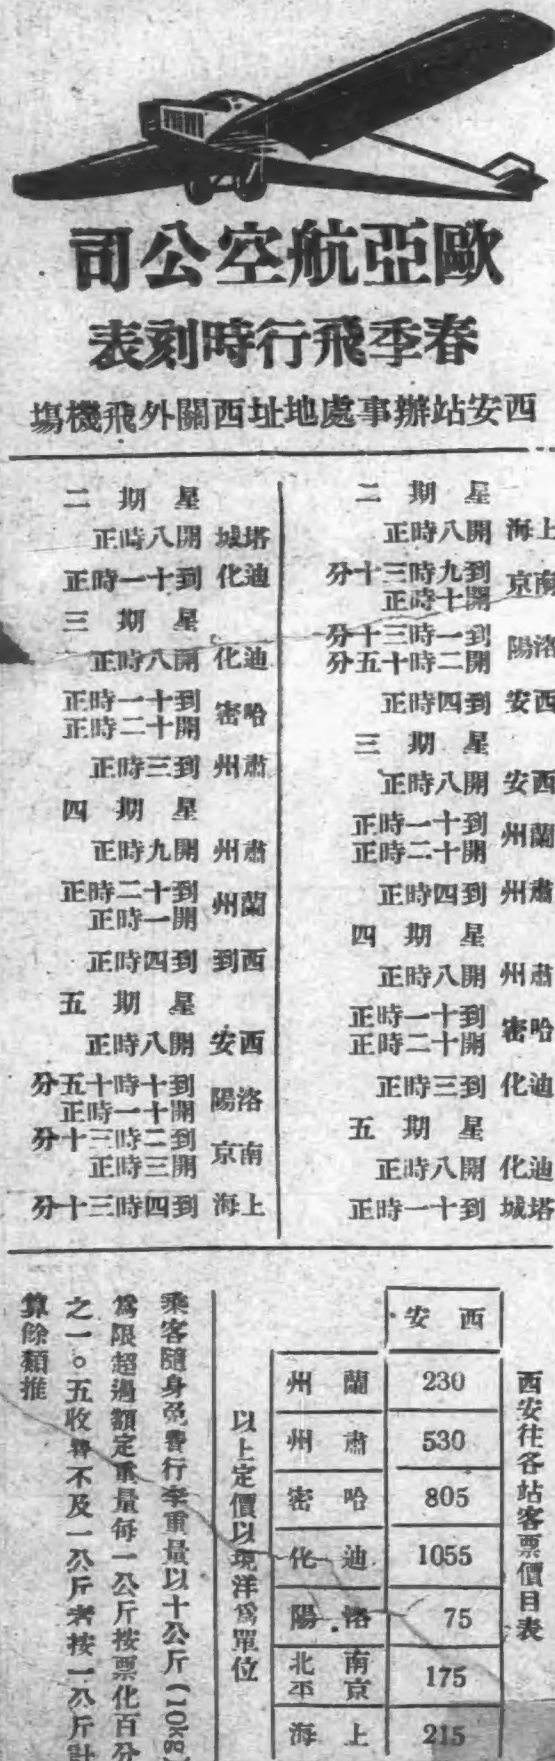 歐亞航空公司
春季飛行時刻表
西安站辦事處地址西關外飛機塲
星期二
上海 開八時正
南京 到九時三十分
開十時正
洛陽 到一時三十分
開二時十五分
西安 到四時正
星期三
西安 開八時正
蘭州 到十一時正
開十二時正
肅州 到四時正
星期四
肅州 開八時正
哈密 到十一時正
開十二時正
迪化 到三時正
星期五
迪化 開八時正
塔城 到十一時正
星期二
塔城 開八時正
迪化 到十一時正
星期三
迪化 開八時正
哈密 到十一時正
開十二時正
肅州 到三時正
星期四
肅州 開九時正
蘭州 到十二時正
開一時正
西到 到四時正
星期五
西安 開八時正
洛陽 到十時十五分
開十一時正
南京 到二時三十分
開三時正
上海 到四時三十分
西安往各站客票價目表
西安
蘭州 230
肅州 530
哈密 805
迪化 1055
洛陽 75
南京 北平 175
上海 215
以上定價以現洋爲單位
乘客隨身免費行李重量以十公斤(10kg)
爲限超過額定重量每一公斤按票化百分
之一。五收費不及一公斤者按一公斤計
算餘類推